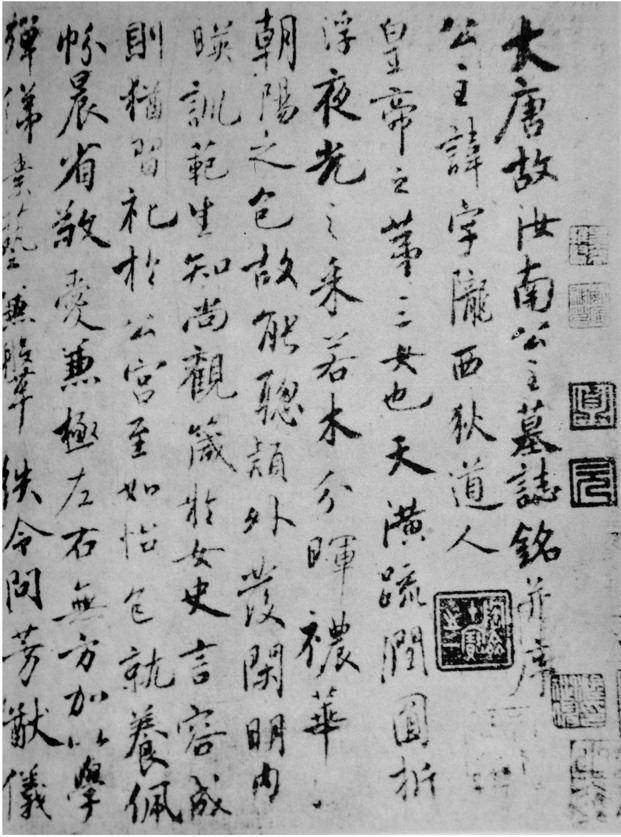 貞
元
大唐故汝南公主墓誌銘并序
公主諱字隴西狄道人
皇帝之第三女也天潢疏潤圓折
浮夜光之采若木分暉穠華
朝陽之色故能聰穎外發閑明內
暎訓範生知尚觀箴於女史言容成
則猶習礼於公宮至如怡色就養佩
帉晨省敬愛兼極左右無方加以學
殫綈素藝兼鞶紩令問芳猷儀